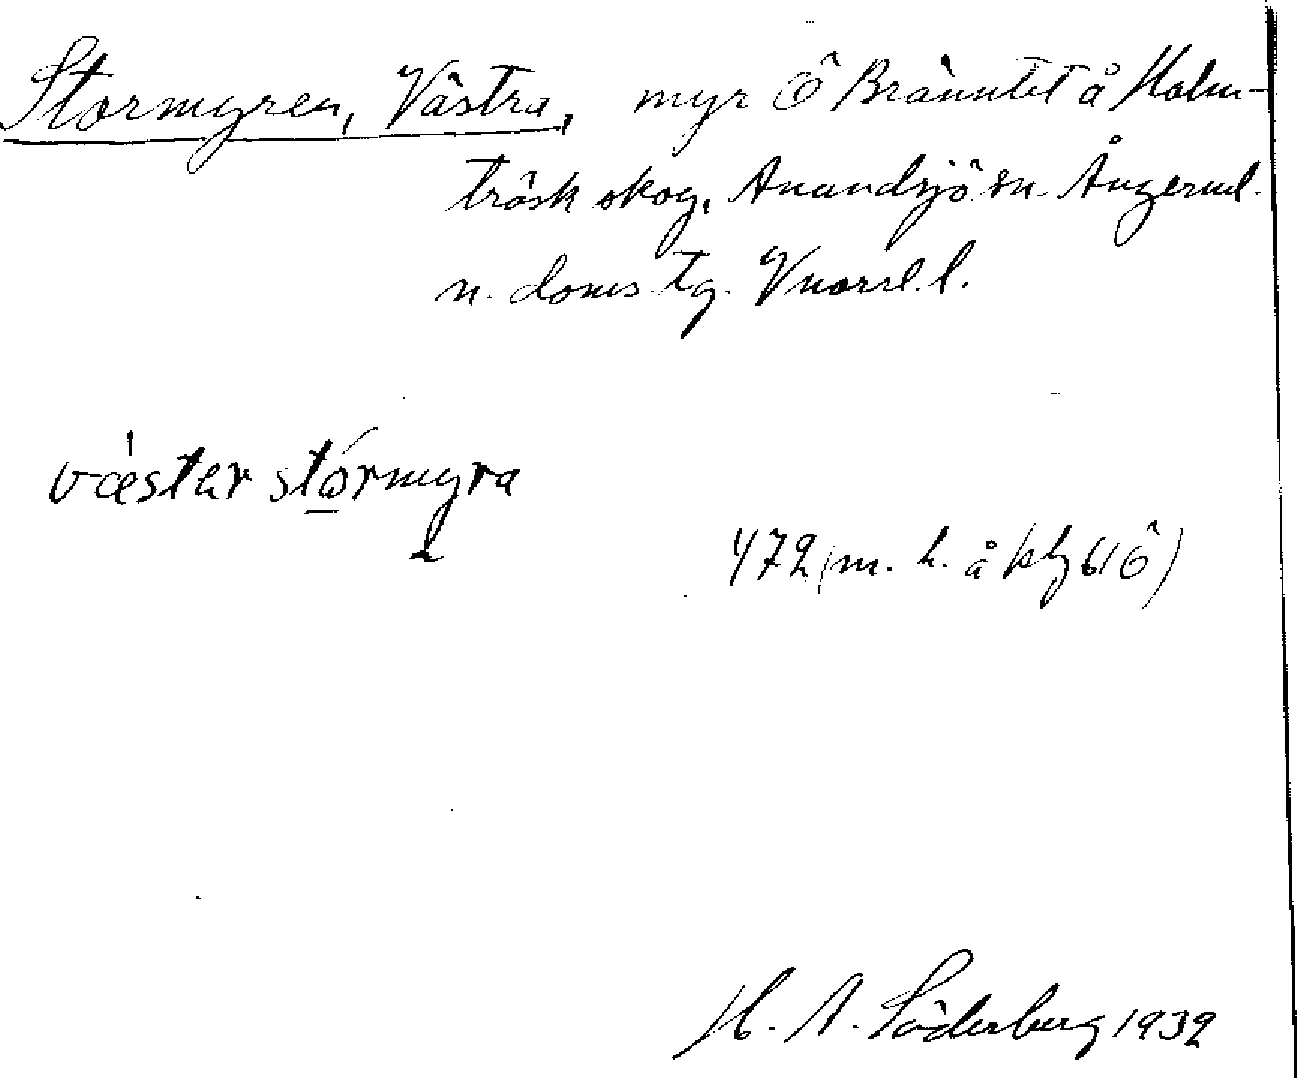 Stormyren, Västra, myr Ö Bränntet å Holm-
träsk skog, Anundsjö sn. Ångerml.
n. doms.tg. Vnorrl. l.
väster stormyra
472 (m. h. å kbl 61 Ö)
H. A. Söderberg 1932